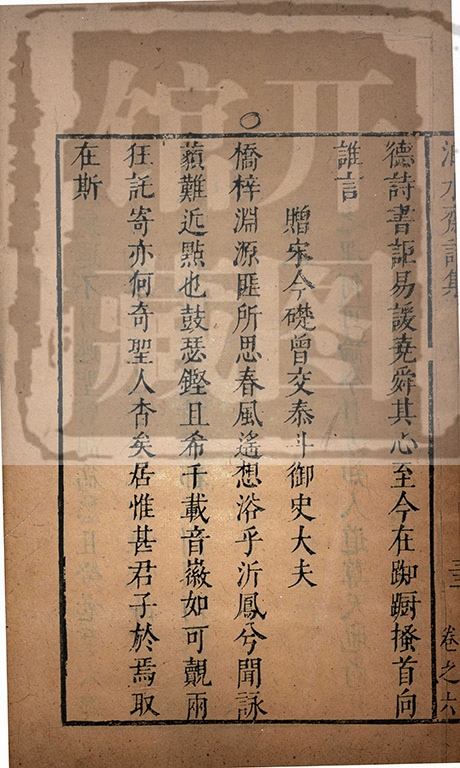 泊水齋詩集
卷之六
德詩書詎易諼堯舜其心至今在踟躕搔首向
誰言
贈宋今礎曾交泰斗御史大夫
橋梓淵源匪所思春風遙想浴乎沂鳳兮聞詠
蘋難近點也鼓瑟鏗且希千載音徽如可覿兩
狂託寄亦何奇聖人杳矣居惟甚君子於焉取
在斯
开图
馆藏